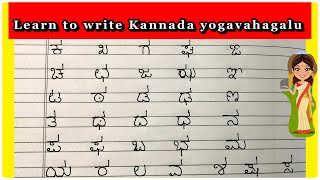 Learn to write Kannada yogavahagalu
ಕ ಖ ಗ ಘ ಙ
ಚ ಛ ಜ ಝ ಞ
ಟ ಠ ಡ ಢ ಣ
ತ ಥ ದ ಧ ನ
ಪ ಫ ಬ ಭ ಮ
ಯ ರ ಲ ವ ಶ ಷ ಸ